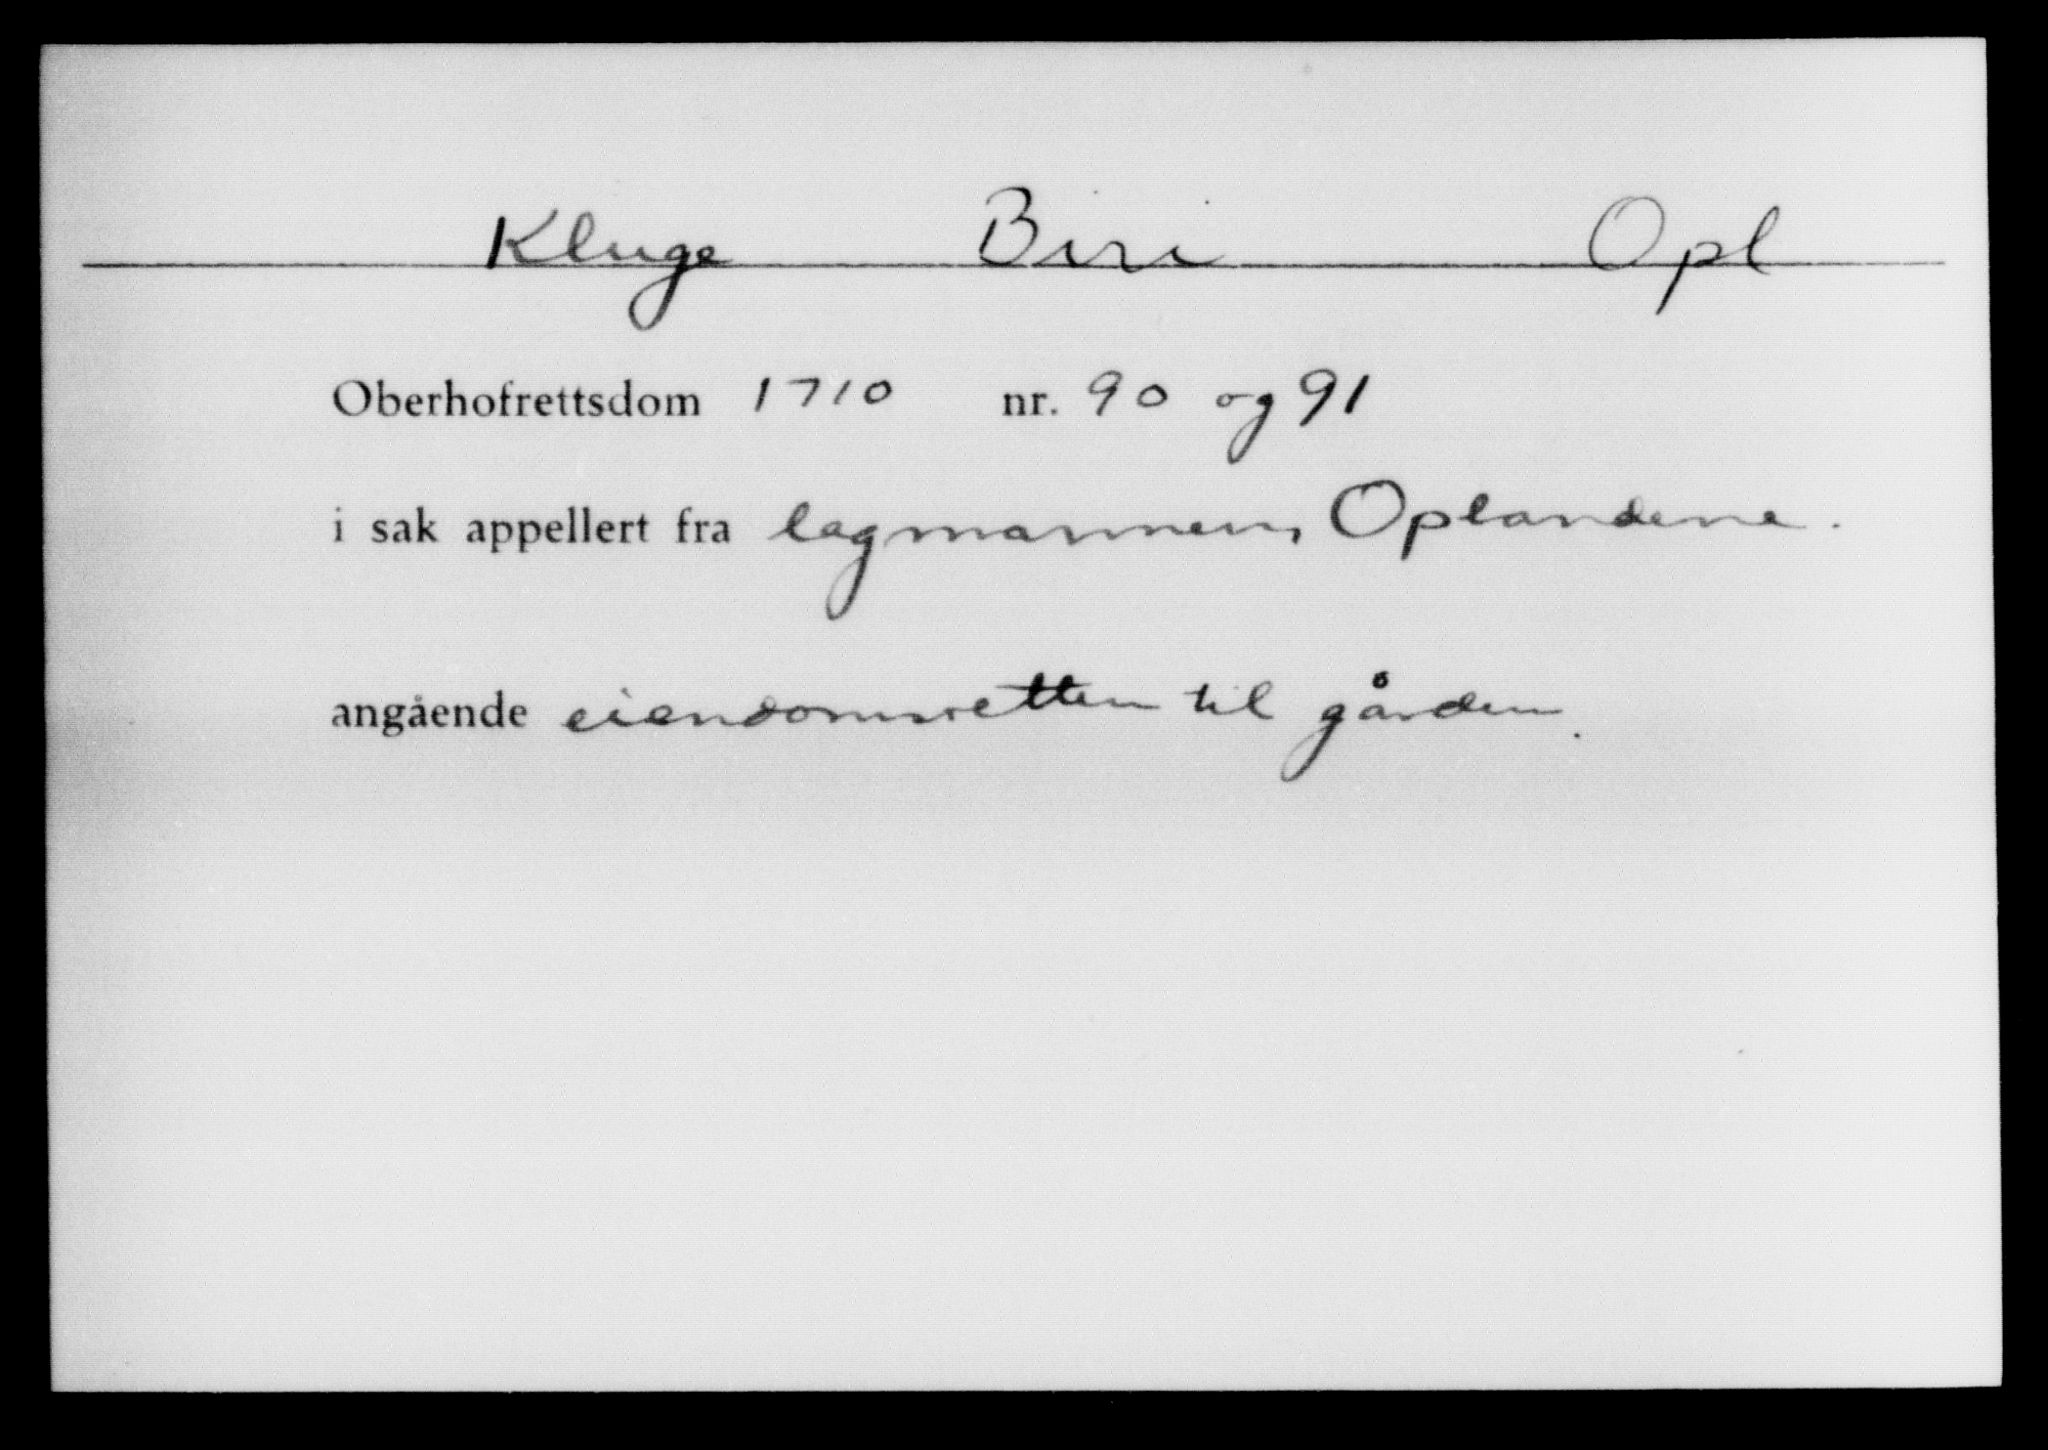 Kluge Biri Opl
Oberhofrettsdom 1710 nr. 90 og 91
i sak appellert fra lagmannen, Oplandene.
angående eiendomsretten til gården.